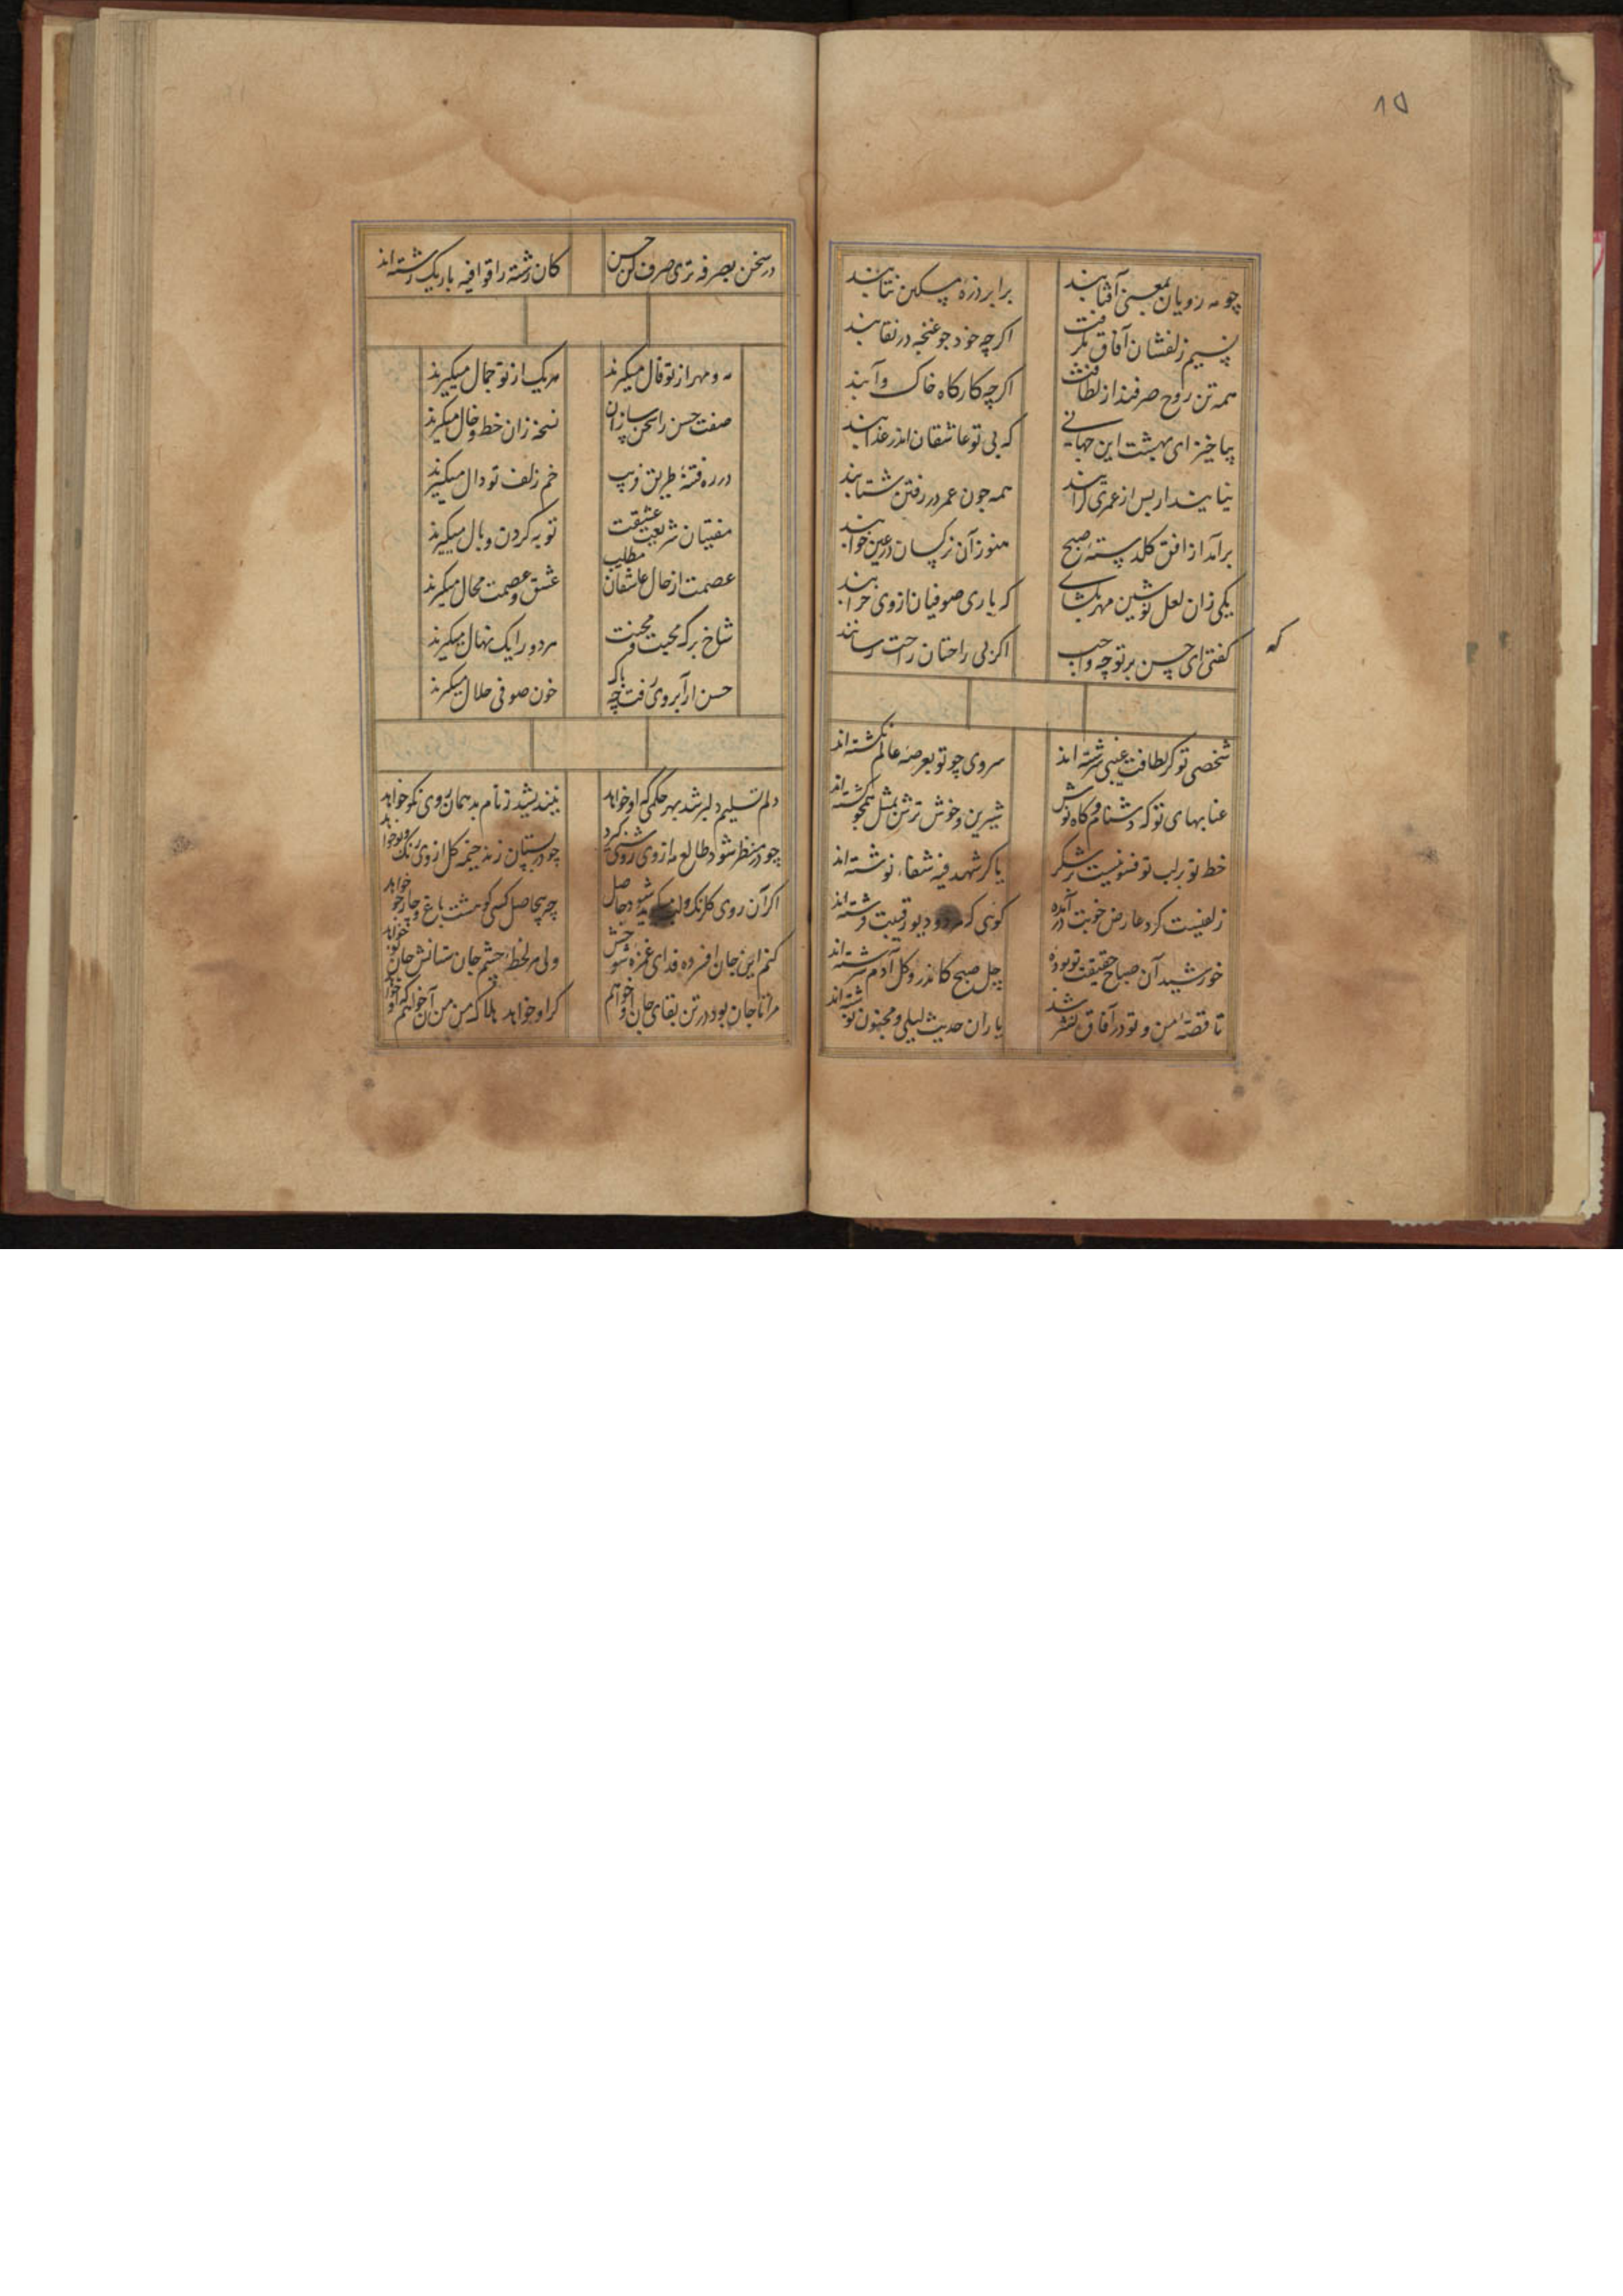 ۸۵
چو مه رویان بمعنی آفتابند برابر ذره مسکین نتابند
نسیم زلفشان آفاق بگرفت اکرچه خود جو غنچه در نقابند
همه تن روح صرفند از لطافت اکرچه کارکاه خاک و آبند
بیا خیز ای بهشت این جهانی که بی تو عاشقان اندر عذابند
نیایند ار بس از عمری کرایند همه جون عمر در رفتن شتابند
برآمد از افق کلدسته صبح هنوز آن نرکسان در عین خوابند
یکی زان لعل نوشین مهر بکشای که باری صوفیان از وی خرابند
که
کفتی ای حسن بر تو چه واجب اکر بی راحتان راحت رسانند
شخصی تو کز لطافت غیبی سرشته اند سروی چو تو بعرصه عالم نکشته اند
عنابهای تو که دشنام و کاه نوش شیرین و خوش ترش بمثل همجو کشته اند
خط تو بر لب تو فسونیست بر شکر یا کرد شهد فیه شفاء نوشته اند
زلفیست کرد عارض خوبت درآمده کوئی که دیو رقیبت فرشته اند
خورشید آن صباح حقیقت تو بوده چل صبح کاندرو کل آدم سرشته اند
تا قصه من و تو در آفاق نشر شد یاران حدیث لیلی و مجنون نوشته اند
در سخن بصرفه تری صرف کن حسن کان رشته را قوافیه باریک رشته اند
مه و مهر از تو فال میکیرند هریک از تو جمال میکیرند
صفت حسن را سخن سازان نسخه زان خط و خال میکیرند
در ره فتنه طریق فریب خم زلف تو دال میکیرند
مفتیان شریعت عشقت توبه کردن وبال میکیرند
عصمت از حال عاشقان مطلب عشق و عصمت محال میکیرند
شاخ برک محبت و محنت هر دو را یک نهال میکیرند
حسن ار آبروی رفت چه باک خون صوفی حلال میکیرند
دلم تسلیم دلبر شد بهر حکمی که او خواهد نیندیشد ز نام بد همان روی نکو خواهد
چو در منظر شود طالع مه از وی روشنی کیرد چو در بستان زند خیمه کل از وی رنک و بو خواهد
اکر آن روی کلرنک شود حاصل چه بیحاصل کسی کو هشت باغ و چار جو خواهد
کنم این جان افسرده فدای غمزه شوخش ولی هر لحظه چشم جان ستانش جان نو خواهد
مرا تا جان بود در تن بقای جان او خواهم کر او خواهد هلاک من من آن خواهم که او خواهد